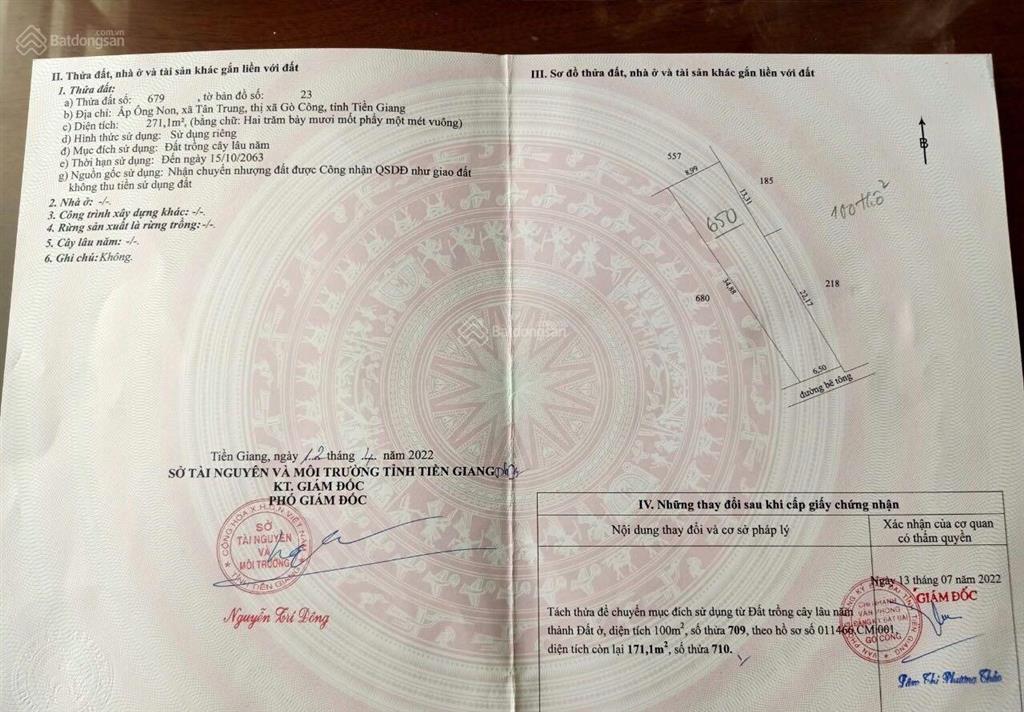 Batdongsan.com.vn
II. Thửa đất, nhà ở và tài sản khác gắn liền với đất
1. Thửa đất:
a) Thửa đất số: 679 , tờ bản đồ số: 23
b) Địa chỉ: Ấp Ông Non, xã Tân Trung, thị xã Gò Công, tỉnh Tiền Giang
c) Diện tích: 271,1m², (bằng chữ: Hai trăm bảy mươi mốt phẩy một mét vuông)
d) Hình thức sử dụng: Sử dụng riêng
đ) Mục đích sử dụng: Đất trồng cây lâu năm
e) Thời hạn sử dụng: Đến ngày 15/10/2063
g) Nguồn gốc sử dụng: Nhận chuyển nhượng đất được Công nhận QSDĐ như giao đất
không thu tiền sử dụng đất
2. Nhà ở: -/-.
3. Công trình xây dựng khác: -/-.
4. Rừng sản xuất là rừng trồng:-/-.
5. Cây lâu năm: -/-.
6. Ghi chú: Không.
Tiền Giang, ngày 12 tháng 4 năm 2022
SỞ TÀI NGUYÊN VÀ MÔI TRƯỜNG TỈNH TIỀN GIANG
KT. GIÁM ĐỐC
PHÓ GIÁM ĐỐC
CỘNG HÒA X.H.C.N VIỆT NAM
SỞ
TÀI NGUYÊN
VÀ
MÔI TRƯỜNG
TỈNH TIỀN GIANG
Nguyễn Trí Dông
III. Sơ đồ thửa đất, nhà ở và tài sản khác gắn liền với đất
B
557
8,99
185
13,31
650
100thổ²
680
34,88
22,17
218
6,50
đường bê tông
Batdongsan
IV. Những thay đổi sau khi cấp giấy chứng nhận
Nội dung thay đổi và cơ sở pháp lý
Xác nhận của cơ quan
có thẩm quyền
Tách thửa để chuyển mục đích sử dụng từ Đất trồng cây lâu năm
thành Đất ở, diện tích 100m², số thửa 709, theo hồ sơ số 011466.CM.001.
diện tích còn lại 171,1m², số thửa 710.
Ngày 13 tháng 07 năm 2022
GIÁM ĐỐC
CHI NHÁNH
VĂN PHÒNG
ĐĂNG KÝ ĐẤT ĐAI
GÒ CÔNG
Thị Phương Thảo